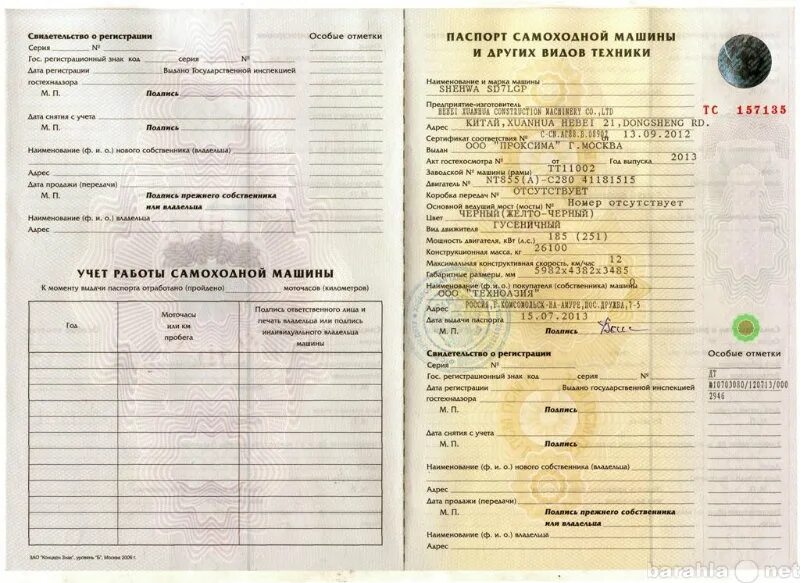 Свидетельство о регистрации
Особые отметки
Серия № 
Гос. регистрационный знак код серия №
Дата регистрации Выдано Государственной инспекцией
гостехнадзора
М. П. Подпись
Дата снятия с учета
М. П. Подпись
Наименование (ф. и о.) нового собственника (владельца)
Адрес
Дата продажи (передачи)
М. П. Подпись прежнего собственника
или владельца
Наименование (ф. и о.) владельца
Адрес
УЧЕТ РАБОТЫ САМОХОДНОЙ МАШИНЫ
К моменту выдачи паспорта отработано (пройдено) моточасов (километров)
Год
Моточасы
или км
пробега
Подпись ответственного лица и
печать владельца или подпись
индивидуального владельца
машины
ЗАО "Концерн Знак", уровень "Б", Москва 2009 г.
ПАСПОРТ САМОХОДНОЙ МАШИНЫ
И ДРУГИХ ВИДОВ ТЕХНИКИ
Наименование и марка машины
SHEHWA SD7LGP
Предприятие-изготовитель
HEBEI XUANHUA CONSTRUCTION MACHINERY CO.,LTD
ТС 157135
Адрес КИТАЙ,XUANHUA HEBEI 21,DONGSHENG RD.
Сертификат соответствия № C-CN.АГ88.В.08982 от 13.09.2012
Выдан ООО "ПРОКСИМА" Г.МОСКВА
Акт гостехосмотра № от Год выпуска 2013
Заводской № машины (рамы) TT11002
Двигатель № NT855(A)-C280 41181515
Коробка передач № ОТСУТСТВУЕТ
Основной ведущий мост (мосты) № Номер отсутствует
Цвет ЧЕРНЫЙ(ЖЕЛТО-ЧЕРНЫЙ)
Вид движителя ГУСЕНИЧНЫЙ
Мощность двигателя, кВт (л.с.) 185 (251)
Конструкционная масса, кг 26100
Максимальная конструктивная скорость, км/час 12
Габаритные размеры, мм 5982х4382х3485
Наименование (ф.и о.) покупателя (собственника) машины
ООО "ТЕХНОАЗИЯ"
Адрес РОССИЯ,Г.КОМСОМОЛЬСК-НА-АМУРЕ,ПОС.ДРУЖБА,7-5
Дата выдачи паспорта 15.07.2013
М. П. Подпись
Свидетельство о регистрации
Особые отметки
Серия №
Гос. регистрационный знак код серия №
Дата регистрации Выдано государственной инспекцией
гостехнадзора
М. П. Подпись
ДТ
№10703080/120713/000
2946
Дата снятия с учета
М. П. Подпись
Наименование (ф. и о.) нового собственника (владельца)
Адрес
Дата продажи (передачи)
М. П. Подпись прежнего собственника
или владельца
Наименование (ф. и о.) владельца
Адрес
barahla.net